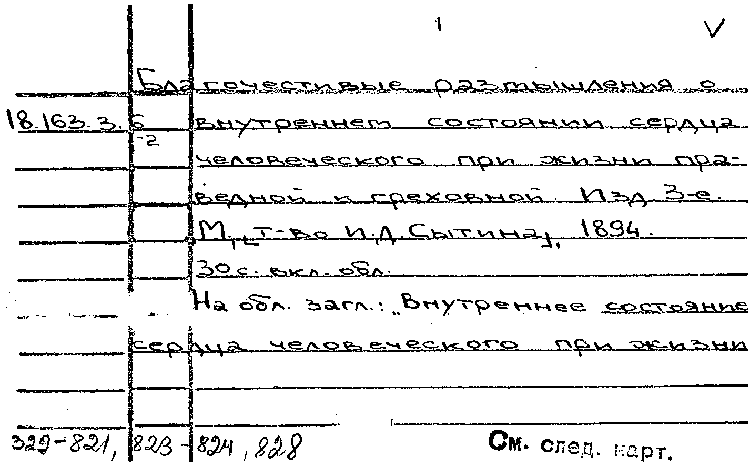 1 V
Благочестивые размышления о
18.163.3.6 внутреннем состоянии сердца
-2
человеческого при жизни пра-
ведной и греховной. Изд. 3-е.
М., [т-во И.Д. Сытина], 1894.
30 с. вкл. обл.
На обл. загл.: „Внутреннее состояние
сердца человеческого при жизни
322-821, 823-824, 828
См. след. карт.